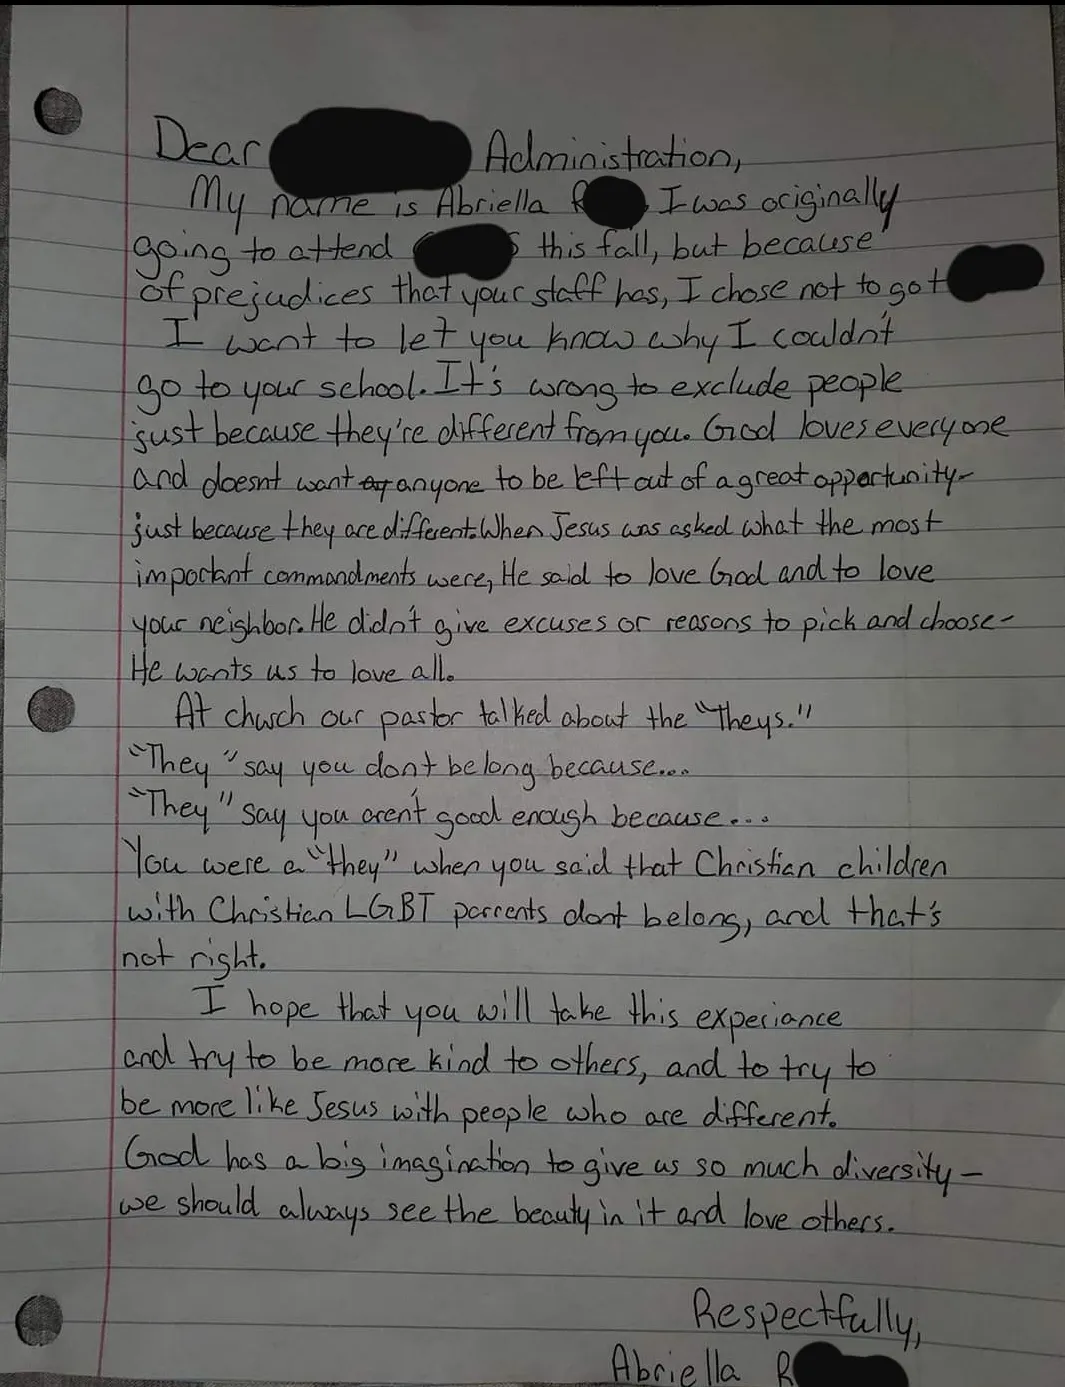 Dear Administration,
My name is Abriella R I was originally
going to attend s this fall, but because
of prejudices that your staff has, I chose not to go t
I want to let you know why I couldn't
go to your school. It's wrong to exclude people
just because they're different from you. God loves everyone
and doesnt want anyone to be left out of a great opportunity-
just because they are different. When Jesus was asked what the most
important commandments were, He said to love God and to love
your neighbor. He didn't give excuses or reasons to pick and choose-
He wants us to love all.
At church our pastor talked about the "Theys."
"They" say you dont belong because...
"They" say you aren't good enough because...
You were a "they" when you said that Christian children
with Christian LGBT parents dont belong, and that's
not right.
I hope that you will take this experiance
and try to be more kind to others, and to try to
be more like Jesus with people who are different.
God has a big imagination to give us so much diversity-
we should always see the beauty in it and love others.
Respectfully,
Abriella R